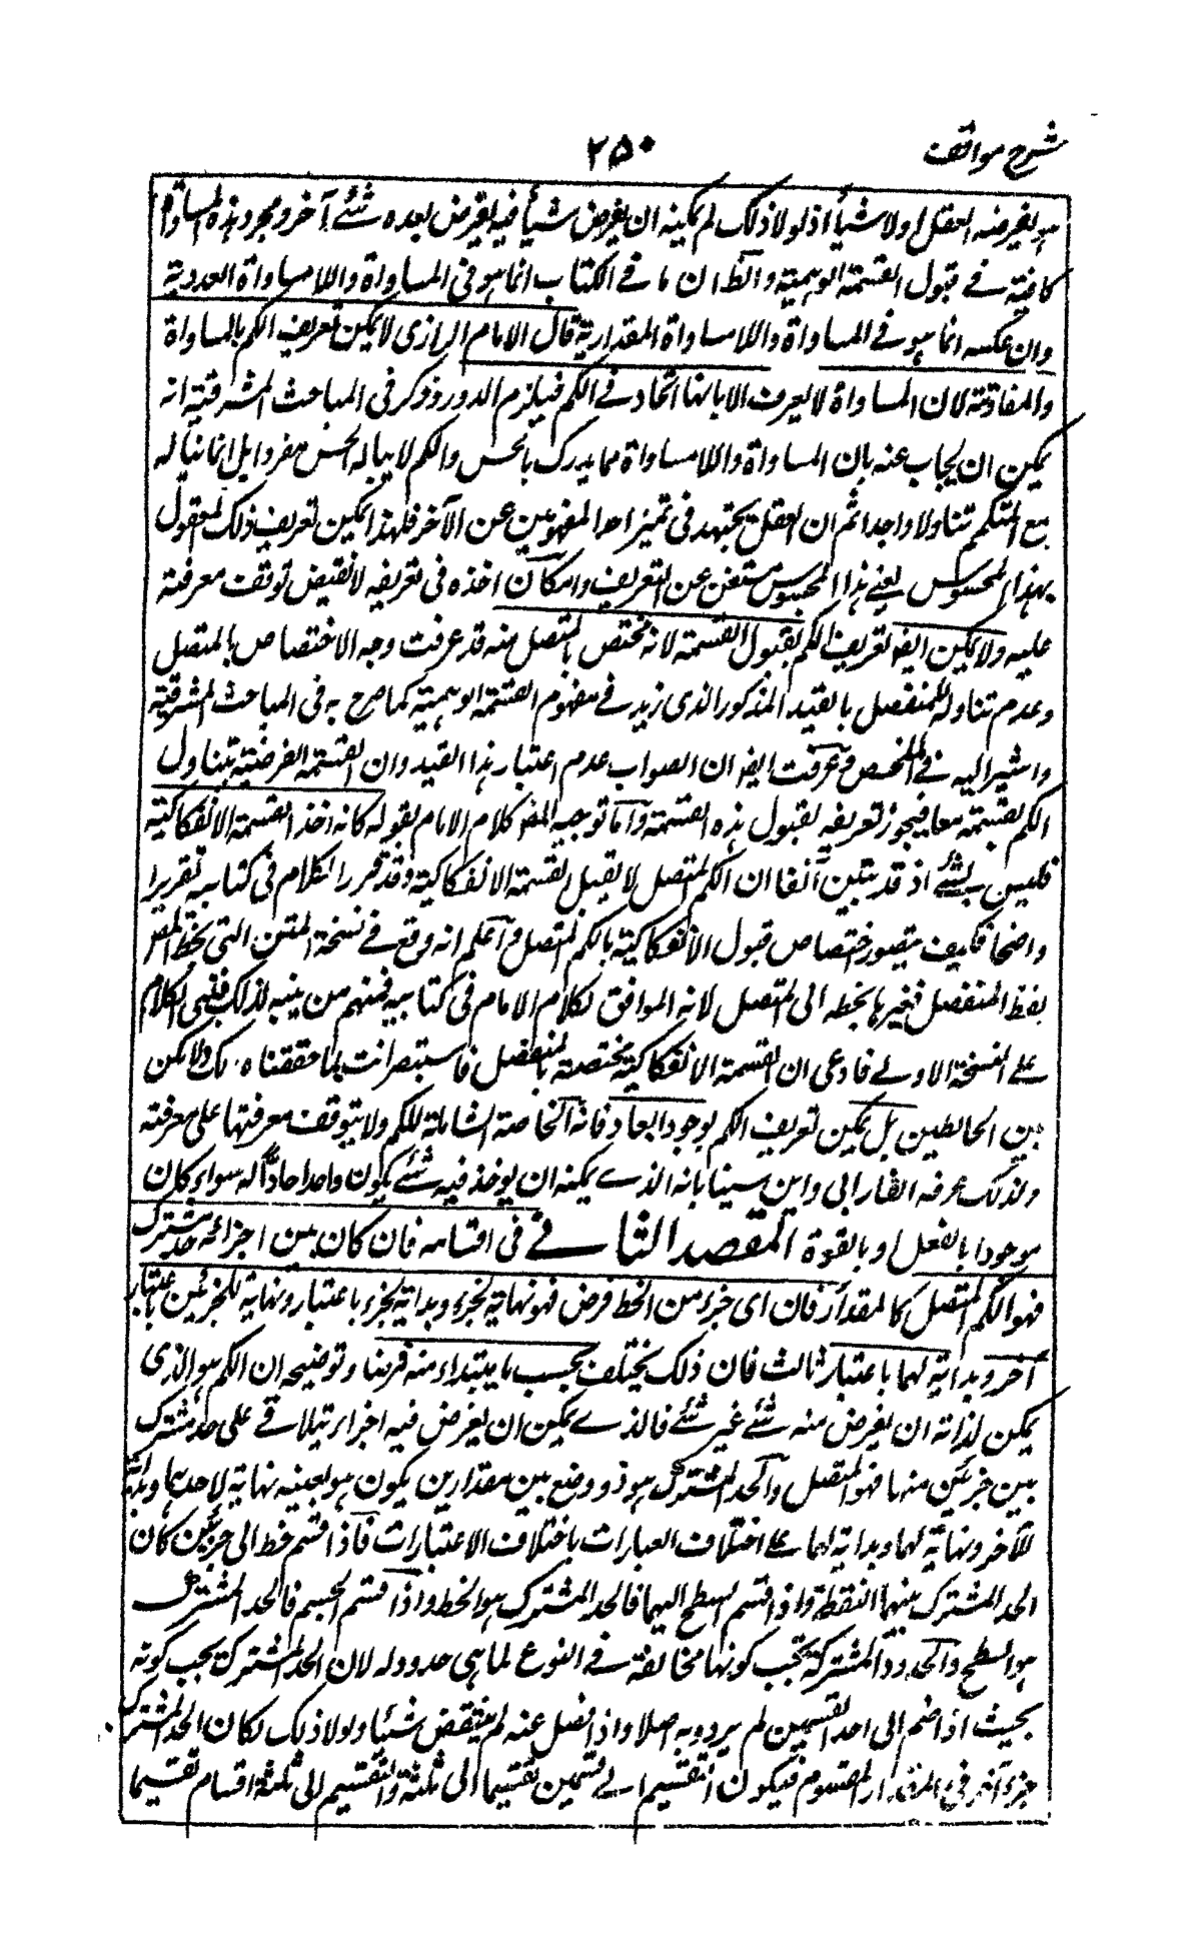 شرح مواقف
۲۵۰
هو يفرضه العقل اولا شيأ اذ لولا ذلك لم يمكنه ان يفرض شيأ فيه يفرض بعده شئ آخر ومجرد هذه المساواة
كافية فى قبول القسمة الوهمية والظ ان ما فى الكتاب انما هو فى المساواة واللا مساواة العددية
وان عكسه انما هو فى المساواة واللا مساواة المقدارية قال الامام الرازى لا يمكن تعريف الكم بالمساواة
والمفاوتة لان المساواة لا يعرف الا بانها اتحاد فى الكم فيلزم الدور وذكر فى المباحث المشرقية انه
يمكن ان يجاب عنه بان المساواة واللا مساواة مما يدرك بالحس والكم لا يناله الحس مفردا بل انما يناله
مع المتكمم تناولا واحدا ثم ان العقل يجتهد فى تميز احد المفهومين عن الآخر فلهذا يمكن تعريف ذلك المعقول
بهذا المحسوس يعنى هذا المحسوس مستغن عن التعريف وامكان اخذه فى تعريفه لا يقتضى توقف معرفته
عليه ولا يمكن ايضا تعريف الكم بقبول القسمة لانه مختص بالمتصل منه قد عرفت وجه الاختصاص بالمتصل
وعدم تناوله للمنفصل بالقيد المذكور الذى زيد فى مفهوم القسمة الوهمية كما صرح به فى المباحث المشرقية
واشير اليه فى الملخص وعرفت ايضا ان الصواب عدم اعتبار هذا القيد وان القسمة الفرضية تتناول
الكم بقسميه معا فيجوز تعريفه بقبول هذه القسمة واما توجيه المص كلام الامام بقوله كانه اخذ القسمة الانفكاكية
فليس بشئ اذ قد تبين آنفا ان الكم المتصل لا يقبل القسمة الانفكاكية وقد قرر الكلام فى كتابيه تقريرا
واضحا فكيف يتصور اختصاص قبول الانفكاكية بالكم المتصل واعلم انه وقع فى نسخة المتن التى بخط المص
لفظ المنفصل فغيرها بخطه الى المتصل لانه الموافق لكلام الامام فى كتابيه فمنهم من ينبه لذلك فبنى الكلام
على النسخة الاولى فادعى ان القسمة الانفكاكية مختصة بالمنفصل فاستبصر انت بما حققناه لك ولا تكن
من الخابطين بل يمكن تعريف الكم بوجود العاد فانه الخاصة الشاملة للكم ولا يتوقف معرفتها على معرفته
ولذلك عرفه الفارابى وابن سينا بانه الذى يمكنه ان يوخذ فيه شئ يكون واحدا عاداً له سواء كان
موجودا بالفعل او بالقوة المقصد الثانى فى اقسامه فان كان بين اجزائه حد مشترك
فهو الكم المتصل كالمقدار فان اى جزء من الخط فرض فهو نهاية لجزء وبداية لجزء باعتبار ونهاية للجزئين باعتبار
آخر وبداية لهما باعتبار ثالث فان ذلك يختلف بحسب ما يبتداء منه فرضا وتوضيحه ان الكم هو الذى
يمكن لذاته ان يفرض منه شئ غير شئ فالذى يمكن ان يفرض فيه اجزاء يتلاقى على حد مشترك
بين جزئين منها فهو المتصل والحد المشترك هو ذو وضع بين مقدارين يكون هو بعينه نهاية لاحدهما وبداية
للآخر ونهاية لهما وبداية لهما على اختلاف العبارات باختلاف الاعتبارات فاذا قسم خط الى جزئين كان
الحد المشترك بينهما النقطة واذا قسم السطح اليهما فالحد المشترك هو الخط واذا قسم الجسم فالحد المشترك
هو السطح والحدود المشتركة يجب كونها مخالفة فى النوع لما هى حدود له لان الحد المشترك يجب كونه
بحيث اذا ضم الى احد القسمين لم يزدد به اصلا واذا فصل عنه لم ينتقض شيئا ولولا ذلك لكان الحد المشترك
جزءا آخر فى المقدار المقسوم فيكون التقسيم الى قسمين تقسيما الى ثلثة والتقسيم الى ثلثة اقسام تقسيما